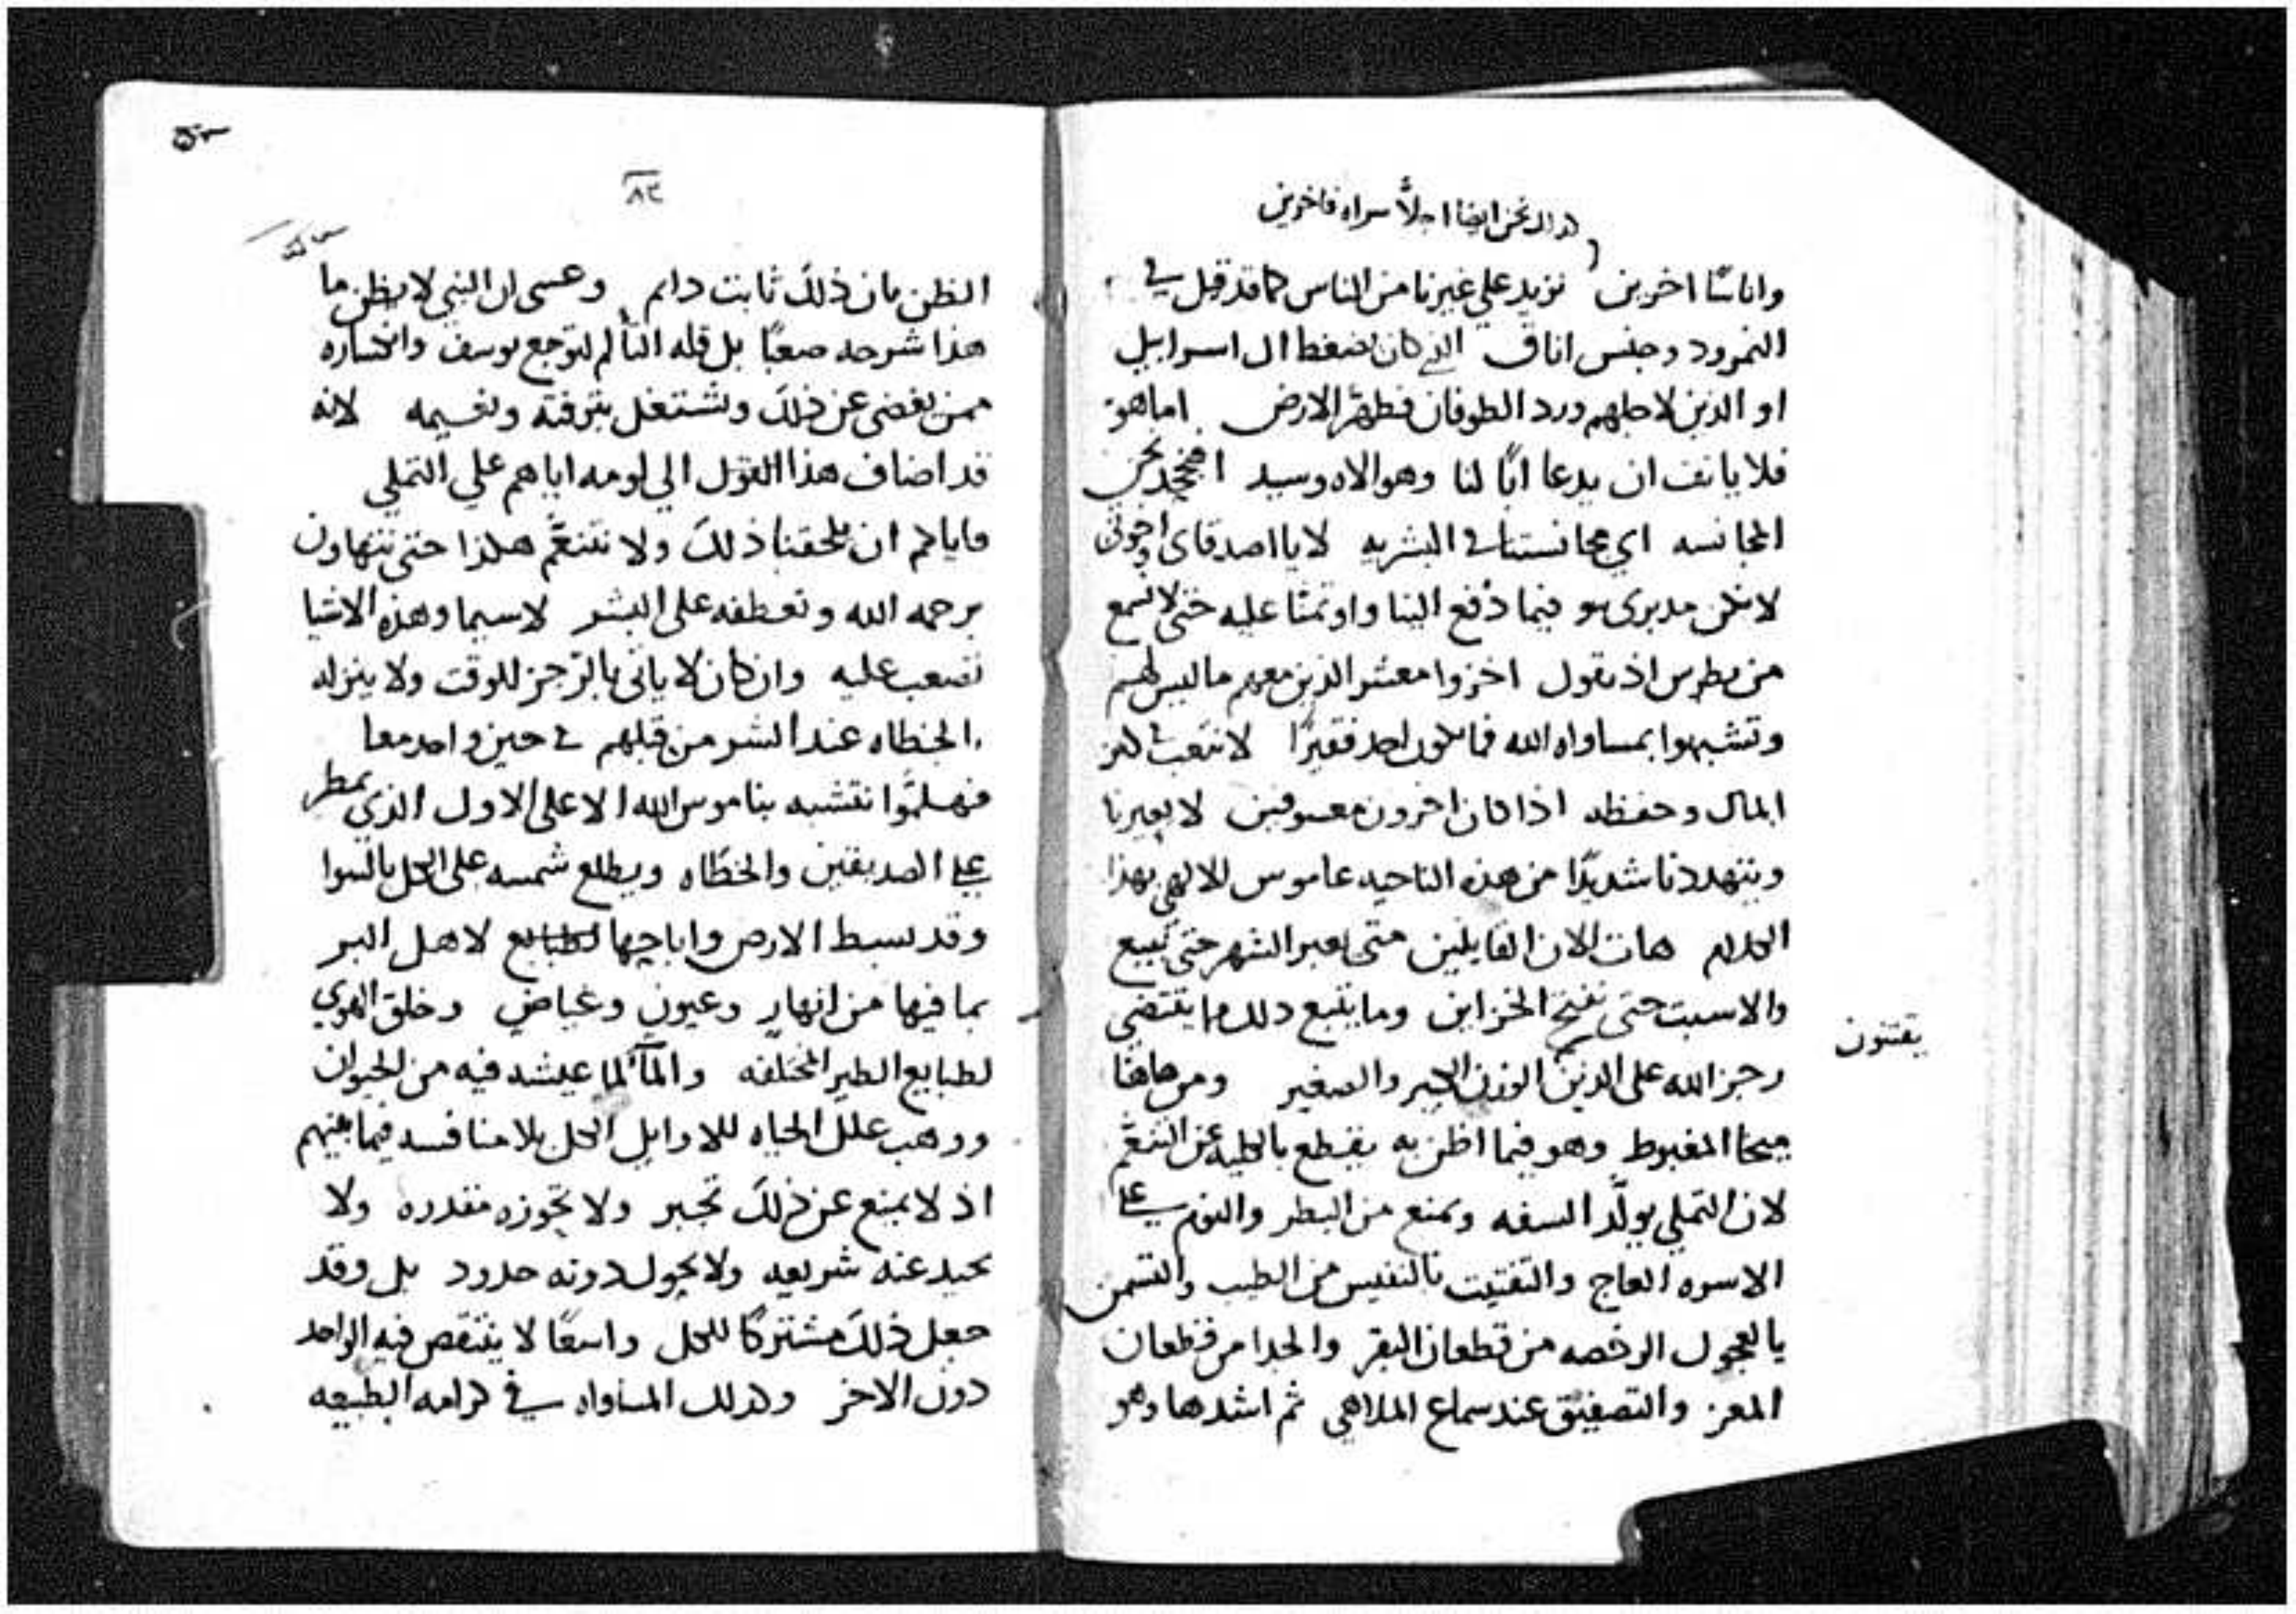 نحن ايضا اجلاّ سراه فاخرين
واناسًا اخرين نزيد علي غيرنا من الناس كما قد قيل في
النمرود وجنس اناق الذي كان يضغط ال اسراييل
او الذين لاجلهم ورد الطوفان فطهّر الارض اما هو
فلا يانف ان يدعا ابًا لنا وهو الاه وسيد افنجحد نحن
المجانسه اي مجانستنا في البشريه لا يا اصدقاي واخوتي
لا نكن مدبري سو فيما دُفع الينا واوتمنّا عليه حتى لا نسمع
من بطرس اذ يقول اخزوا معشر الذين معهم ما ليس لهم
وتشبهوا بمساواه الله فما يكون احد فقيرًا لا نتعب في كنز
المال وحفظه اذا كان اخرون معسوفين لا يعيرنا
ويتهددنا شديدًا من هذه الناحيه عاموس الالهي بهذا
الكلام هات الان القايلين متى يعبر الشهر حتى نبيع
والاسبت حتى نفتح الخزاين وما يتبع ذلك مما يقتضي
رجز الله على الذين الوزن الكبير والصغير ومن هاهنا
يقتنون
ميخا المغبوط وهو فيما اظن به يقطع بالكليه عن التنعّم
لان التملي يولّد السفه ويمنع من البطر والنوم على
الاسره العاج والتفتيت بالنفيس من الطيب والتسمن
بالعجول الرخصه من قطعان البقر والجدا من قطعان
المعز والتصفيق عند سماع الملاهي ثم اشدها وهو
٨٢
الظن بان ذلك ثابت دايم وعسى ان النبي لا يظن ما
هذا شرحه صعبًا بل قله التألم لتوجع يوسف وانكساره
ممن يغضي عن ذلك ويشتغل بترفته ونعيمه لانه
قد اضاف هذا القول الي لومه اياهم علي التملي
فاياكم ان يلحقنا ذلك ولا نتنعّم هكذا حتى نتهاون
برحمه الله وتعطفه على البشر لاسيما وهذه الاشيا
تصعب عليه وان كان لا ياتى بالرّجز للوقت ولا ينزله
بالخطاه عند الشر من قبلهم في حين واحد معا
فهلمّوا نتشبه بناموس الله الاعلى الاول الذي يمطر
على الصديقين والخطّاه ويطلع شمسه على الكل بالسوا
وقد بسط الارض واباحها لاهل البر
بما فيها من انهارٍ وعيون وغياض وخلق الهوي
لطبايع الطير المختلفه والمآ لما عيشه فيه من الحيوان
ووهب علل الحياه للاوايل الكل بلا منافسه فيما بينهم
اذ لا يمنع عن ذلك تجبر ولا تحوزه مقدره ولا
تحيد عنه شريعه ولا يحول دونه حدود بل وقد
جعل ذلك مشتركًا للكل واسعًا لا ينتقص فيه الواحد
دون الاخر وكذلك المساواه في كرامه الطبيعه